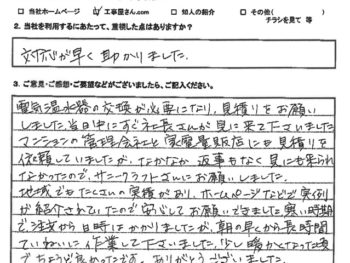 □ 当社ホームページ ☑ 工事屋さん.com □ 知人の紹介 □ その他( )
チラシを見て 等
2. 当社を利用するにあたって、重視した点はありますか?
対応が早く助かりました。
3. ご意見・ご感想・ご要望などがございましたら、ご記入ください。
電気温水器の交換が必要になり、見積りをお願い
しました。当日中にすぐ社長さんが見に来て下さいました
マンションの管理会社と家電量販店にも見積りを
依頼していましたが、なかなか返事もなく見にも来られ
なかったので、サニークラフトさんにお願いしました。
地域でもたくさんの実績があり、ホームページなどで実例
が紹介されていたので安心してお願いできました。寒い時期
で注文から日時はかかりましたが、朝の早くから長時間
ていねいに作業して下さいました。少し暖かくなった頃
でちょうど良かったです。ありがとうございました。